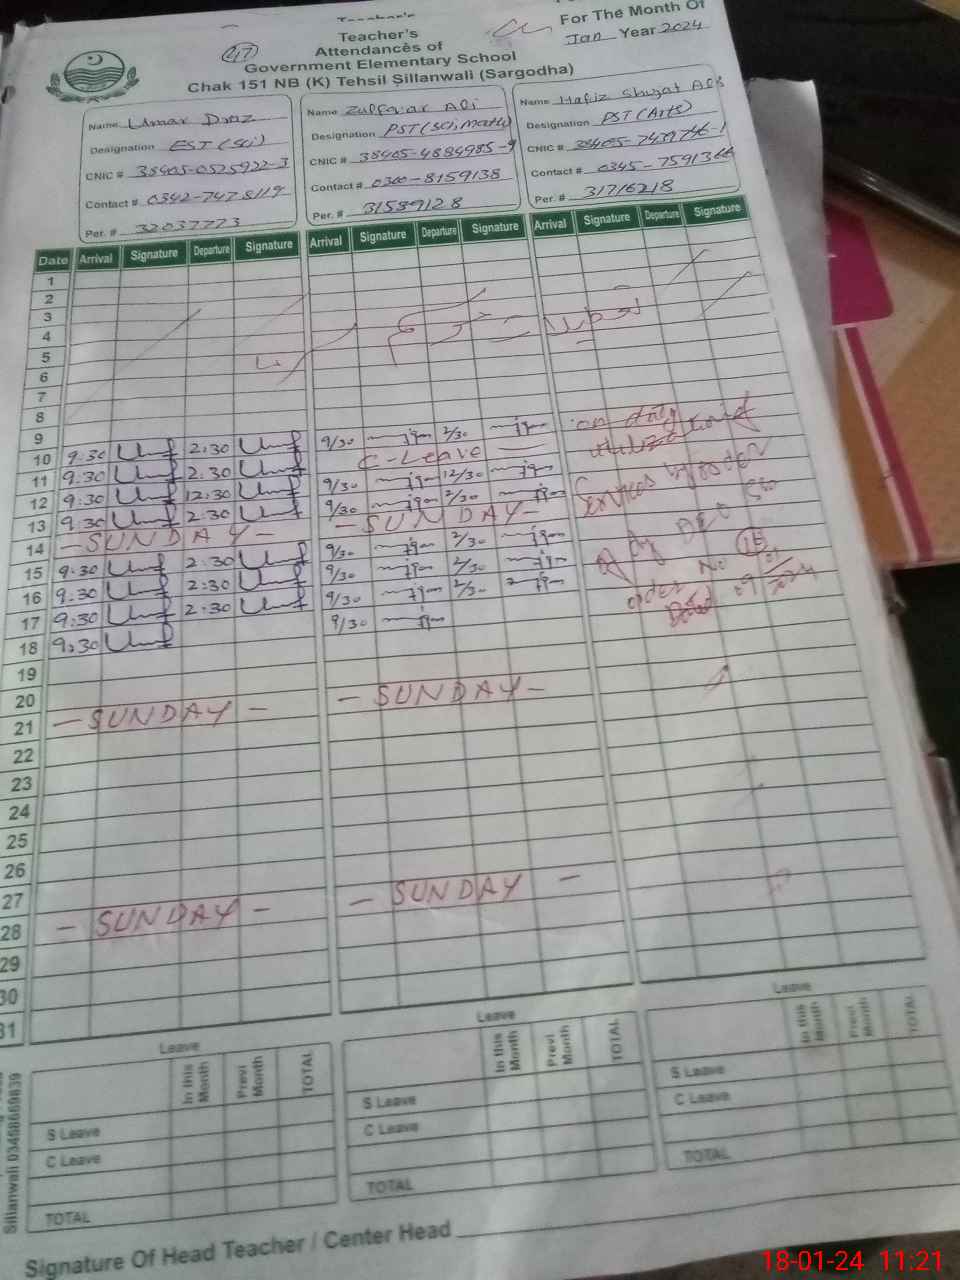 Teacher's
Attendances of
Government Elementary School
Chak 151 NB (K) Tehsil Sillanwali (Sargodha)
For The Month Of
Jan Year 2024
47
Name Umar Draz
Designation EST (Sci)
CNIC # 38405-0525922-3
Contact # 0342-7478119
Per. # 32037773
Name Zulfqar Ali
Designation PST (Sci, Math)
CNIC # 38405-4884985-9
Contact # 0300-8159138
Per. # 31589128
Name Hafiz Shujat Ali
Designation PST (Arts)
CNIC # 38405-7439746-1
Contact # 0345-7591366
Per. # 31716218
Date Arrival Signature Departure Signature Arrival Signature Departure Signature Arrival Signature Departure Signature
1
2
3
4
5
6
7
8
9
10 9:30 2:30 9/30 2/30
11 9:30 2:30 C-Leave
12 9:30 12:30 9/30 12/30
13 9:30 2:30 9/30 2/30
14 - SUNDAY - - SUNDAY -
15 9:30 2:30 9/30 2/30
16 9:30 2:30 9/30 2/30
17 9:30 2:30 9/30 2/30
18 9:30 9/30
on duty
order No 18
Dated 09/01/2024
19
20
21 - SUNDAY - - SUNDAY -
22
23
24
25
26
27
28 - SUNDAY - - SUNDAY -
29
30
31
Leave
In this Month Previ Month TOTAL
S Leave
C Leave
TOTAL
Leave
In this Month Previ Month TOTAL
S Leave
C Leave
TOTAL
Leave
In this Month Previ Month TOTAL
S Leave
C Leave
TOTAL
Signature Of Head Teacher / Center Head
Sillanwali 03458669839
18-01-24 11:21